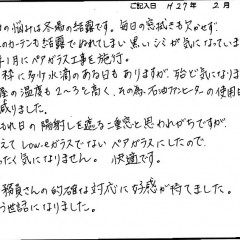 ご記入日 H27年 2月
の悩みは冬場の結露です。毎日の窓拭きも欠かせず
のカーテンも結露でぬれてしまい黒いシミが気になっていま
年1月にペアガラス工事を施行。
枠に多少水滴のある日もありますが、殆ど気になりま
屋の温度も2〜3℃高く、その為石油ファンヒーターの使用
減りました。
もれ日の陽射しを遮る二重窓と思われがちですが
えてLow-eガラスでないペアガラスにしたので
ったく気になりません。快適です。
類員さんの的確は対応に好感が持てました。
う世話になりました。